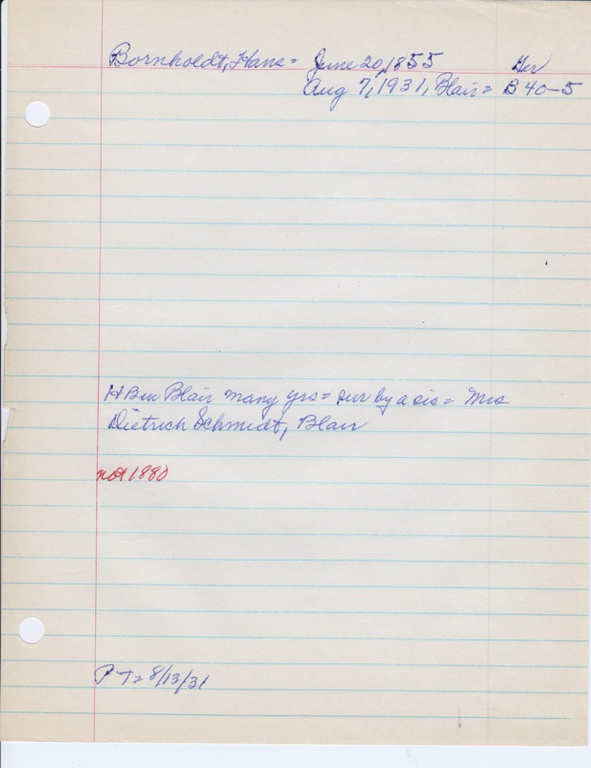 Bornholdt, Hans = June 20, 1855 Ger
Aug 7, 1931, Blair = B 40-5
H B in Blair many yrs = sur by a sis = Mrs
Dietrich Schmidt, Blair
not 1880
P T = 8/13/31